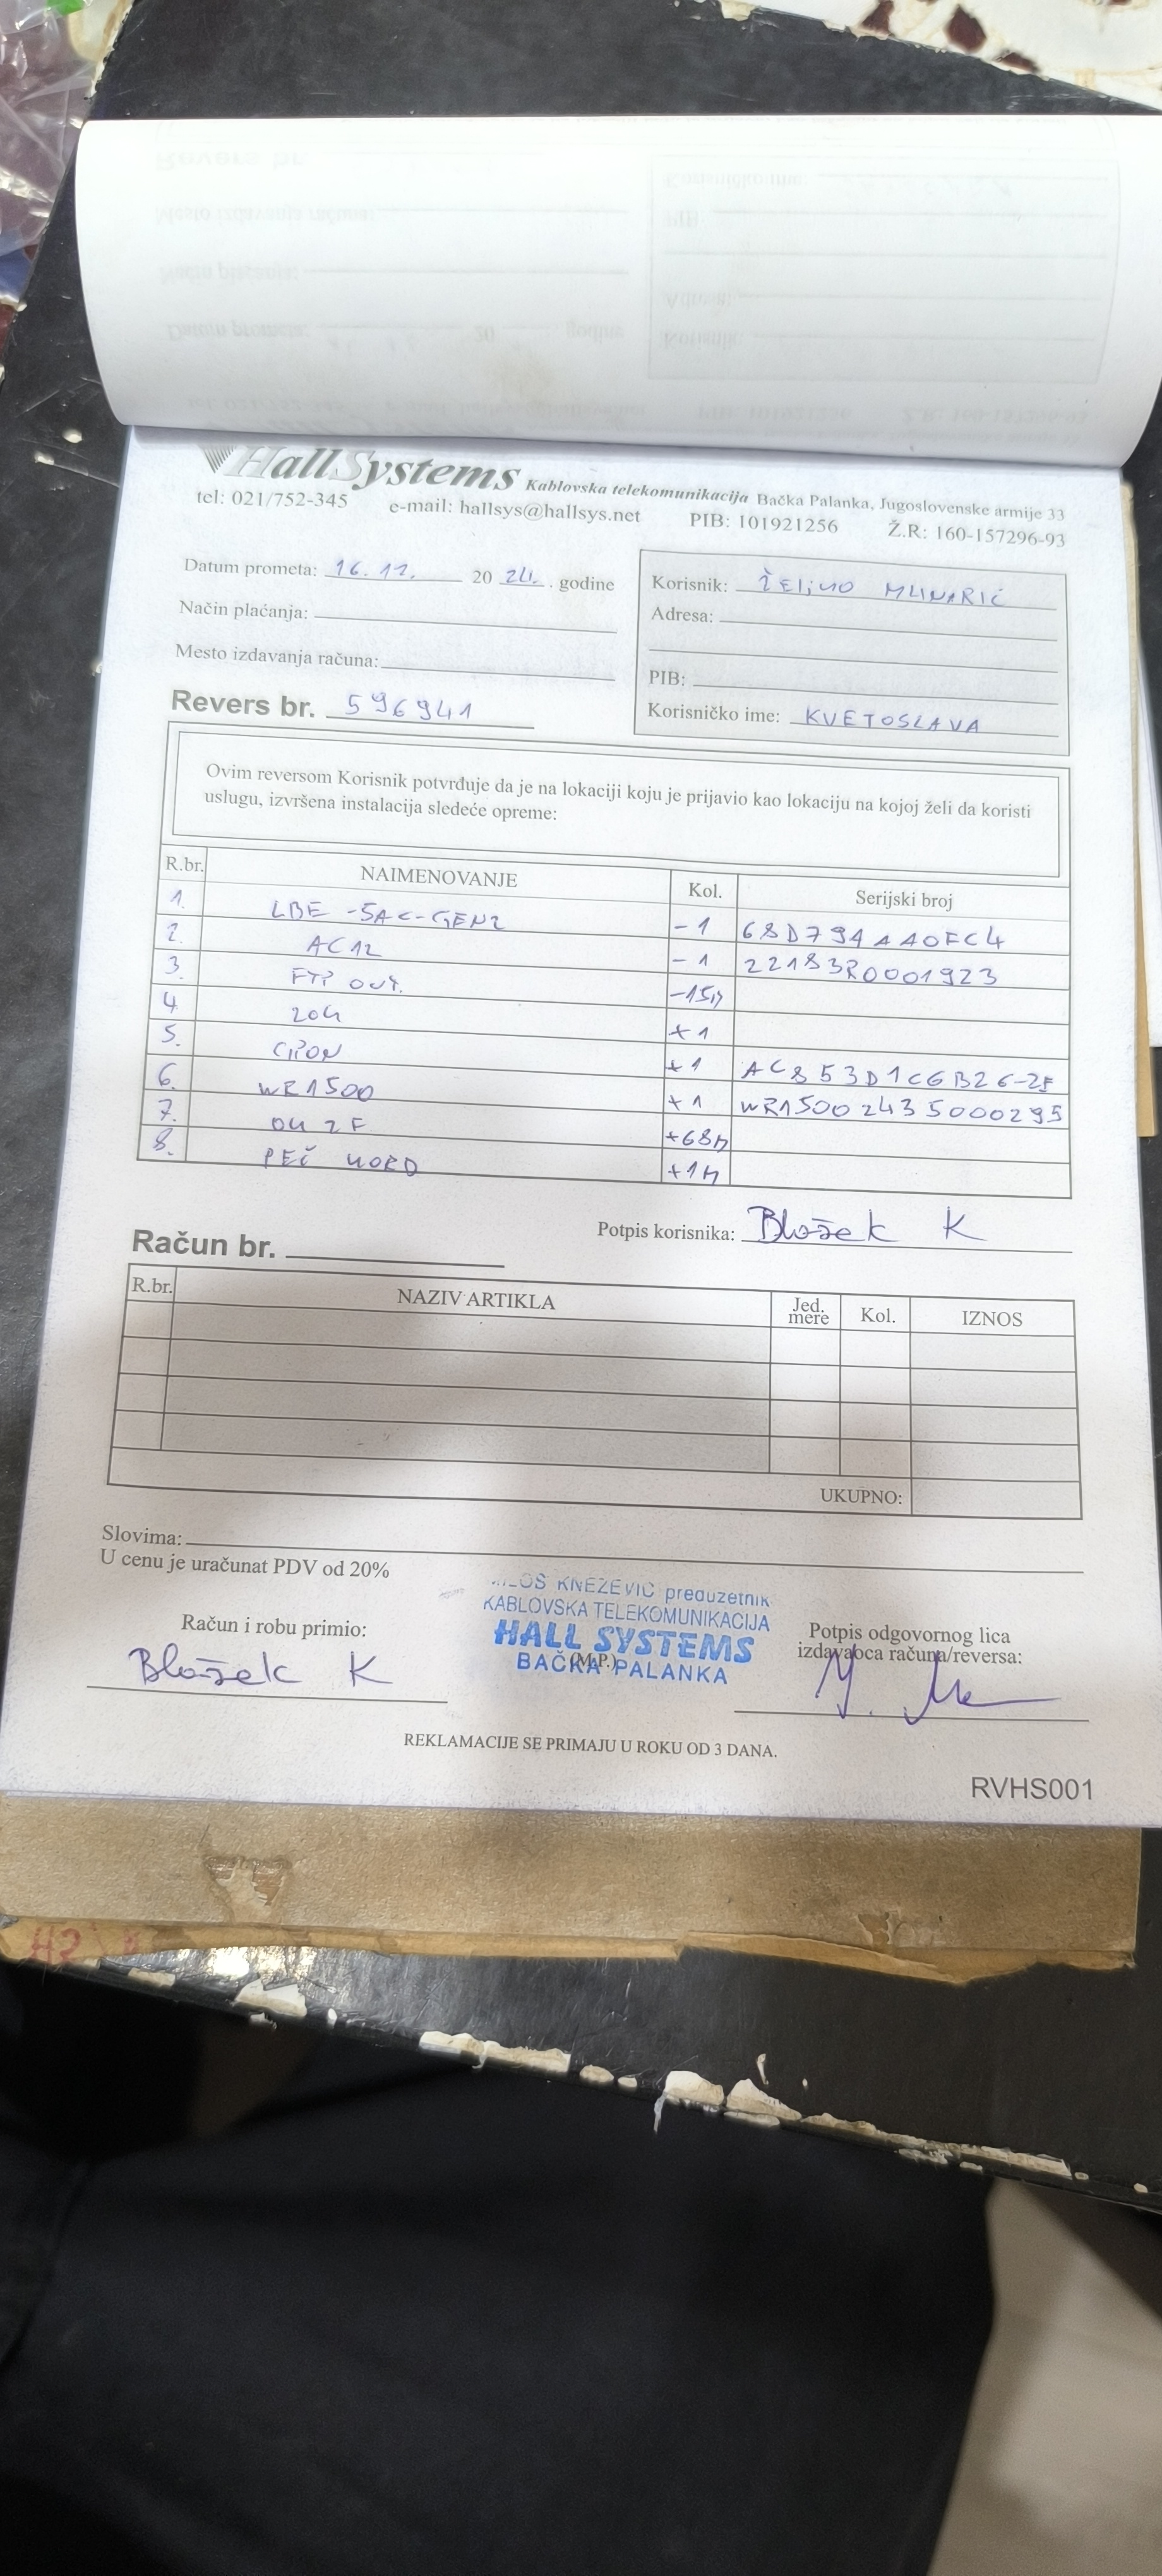 HallSystems Kablovska telekomunikacija Bačka Palanka, Jugoslovenske armije 33
tel: 021/752-345 e-mail: hallsys@hallsys.net PIB: 101921256 Ž.R: 160-157296-93
Datum prometa: 16.12. 20 24. godine
Način plaćanja:
Mesto izdavanja računa:
Revers br. 596941
Korisnik: ŽELJKO MLINARIĆ
Adresa:
PIB:
Korisničko ime: KVETOSLAVA
Ovim reversom Korisnik potvrđuje da je na lokaciji koju je prijavio kao lokaciju na kojoj želi da koristi
uslugu, izvršena instalacija sledeće opreme:
R.br. NAIMENOVANJE Kol. Serijski broj
1. LBE -5AC-GEN2 -1 68D79AAA0FC4
2. AC12 -1 22183R0001923
3. FTP OUT. -15M
4. 204 +1
5. GPON +1 AC853D1C6B26-2F
6. WR1500 +1 WR15002435000295
7. 2F +68M
8. +1M
Potpis korisnika: Blažek K
Račun br.
R.br. NAZIV ARTIKLA Jed. mere Kol. IZNOS
UKUPNO:
Slovima:
U cenu je uračunat PDV od 20%
KNEŽEVIĆ preduzetnik
KABLOVSKA TELEKOMUNIKACIJA
HALL SYSTEMS
(M.P.)
BAČKA PALANKA
Račun i robu primio:
Blažek K
Potpis odgovornog lica
izdavaoca računa/reversa:
REKLAMACIJE SE PRIMAJU U ROKU OD 3 DANA.
RVHS001